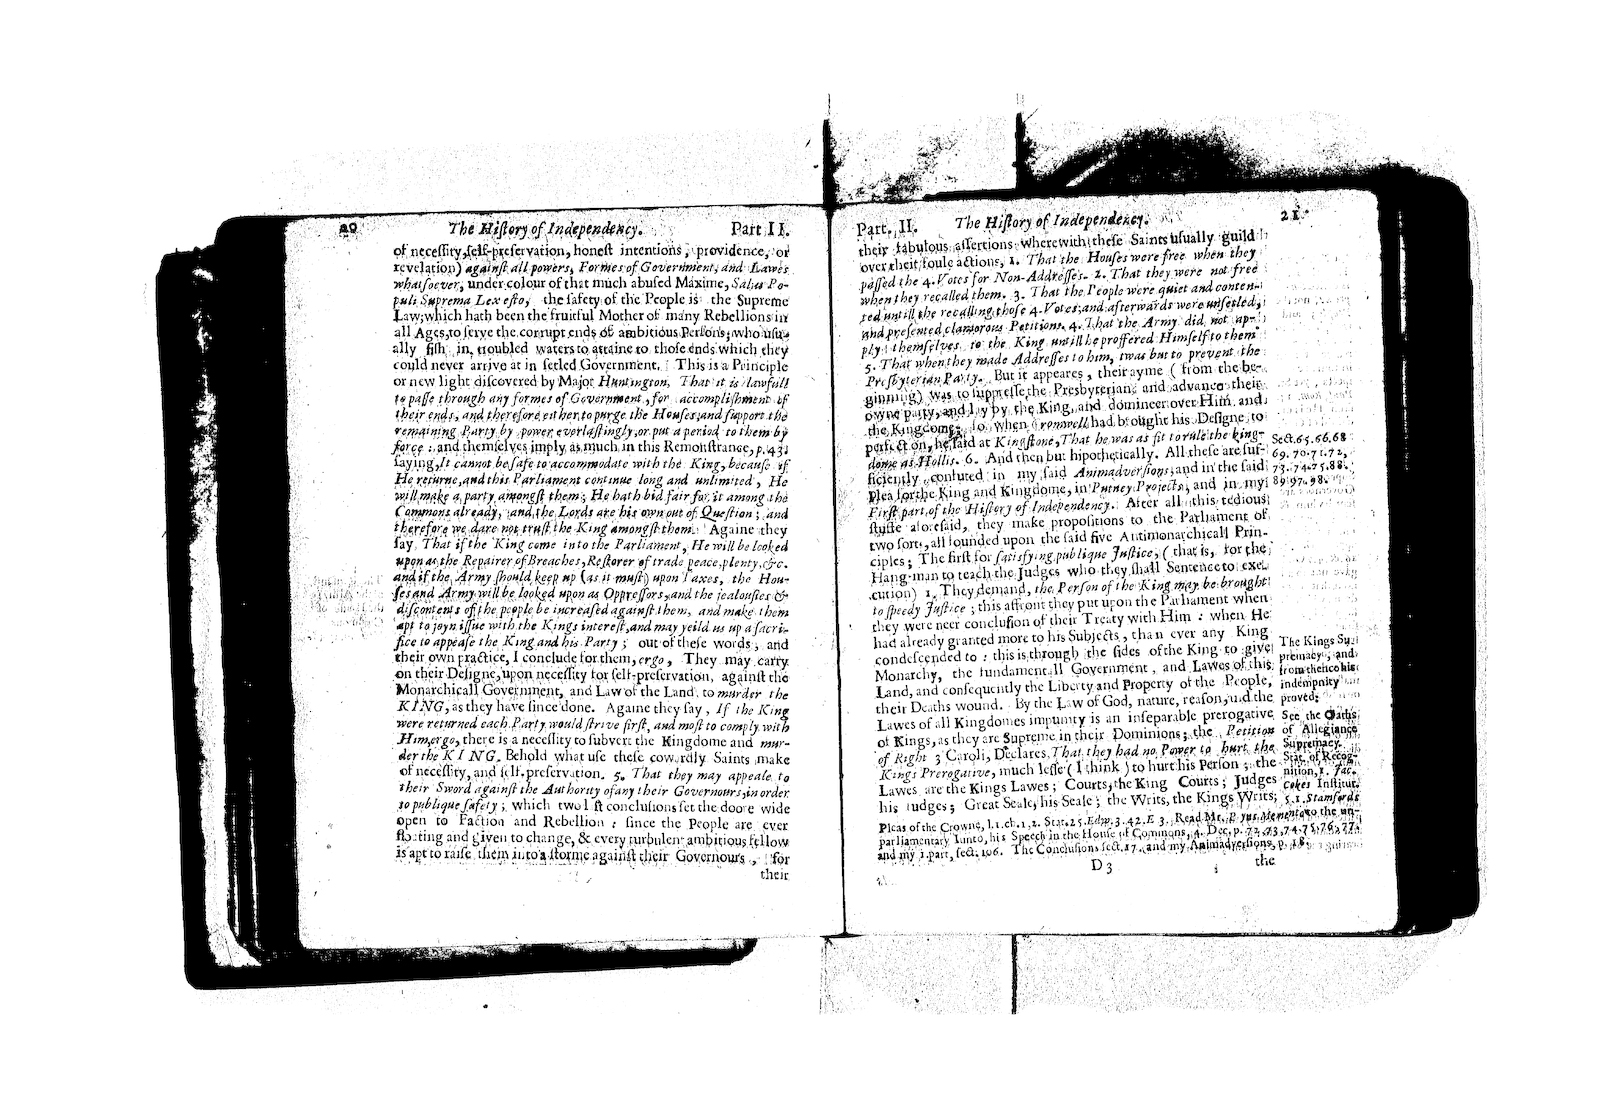 20 The Hiſtory of Independency. Part II.
of neceſſity, ſelf-preſervation, honeſt intentions, providence, or
revelation) againſt all powers, Formes of Government, and Lawes
whatſoever, under colour of that much abuſed Maxime, Salus Po-
puli Suprema Lex eſto, the ſafety of the People is the Supreme
Law; which hath been the fruitful Mother of many Rebellions in
all Ages, to ſerve the corrupt ends of ambitious Perſons, who uſu-
ally fiſh in troubled waters to attaine to thoſe ends which they
could never arrive at in ſetled Government. This is a Principle
or new light diſcovered by Major Huntington, That it is lawfull
to paſſe through any formes of Government, for accompliſhment of
their ends, and therefore either to purge the Houſes, and ſupport the
remaining Party by power everlaſtingly, or put a period to them by
force: and themſelves imply as much in this Remonſtrance, p. 43.
ſaying, It cannot be ſafe to accommodate with the King, becauſe if
He returne, and this Parliament continue long and unlimited, He
will make a party amongſt them; He hath bid fair for it among the
Commons already, and the Lords are his own out of Queſtion; and
therefore we dare not truſt the King amongſt them. Againe they
ſay, That if the King come into the Parliament, He will be looked
upon as the Repairer of Breaches, Reſtorer of trade peace, plenty, &c.
and if the Army ſhould keep up (as it muſt) upon Taxes, the Hou-
ſes and Army will be looked upon as Oppreſſors, and the jealouſies &
diſcontents of the people be increaſed againſt them, and make them
apt to joyn iſſue with the Kings intereſt, and may yeild us up a ſacri-
fice to appeaſe the King and his Party; out of theſe words, and
their own practice, I conclude for them, ergo, They may carry
on their Deſigne, upon neceſſity for ſelf-preſervation, againſt the
Monarchicall Government, and Law of the Land, to murder the
KING, as they have ſince done. Againe they ſay, If the King
were returned each Party would ſtrive firſt, and moſt to comply with
Him, ergo, there is a neceſſity to ſubvert the Kingdome and mur-
der the KING. Behold what uſe theſe cowardly Saints make
of neceſſity, and ſelf-preſervation. 5. That they may appeale to
their Sword againſt the Authority of any their Governours, in order
to publique ſafety; which two l ſt concluſions ſet the doore wide
open to Faction and Rebellion: ſince the People are ever
floating and given to change, & every turbulent ambitious fellow
is apt to raiſe them into a ſtorme againſt their Governours, for
their
Part. II. The Hiſtory of Independency. 21.
their fabulous aſſertions wherewith theſe Saints uſually guild
over their foule actions, 1. That the Houſes were free when they
paſſed the 4. Votes for Non-Addreſſes. 2. That they were not free
when they recalled them. 3. That the People were quiet and conten-
ted untill the recalling thoſe 4. Votes, and afterwards were unſetled,
and preſented clamorous Petitions. 4. That the Army did not ap-
ply themſelves to the King untill he proffered Himſelf to them
5. That when they made Addreſſes to him, twas but to prevent the
Preſbyterian Party. But it appeares, their ayme (from the be-
ginning) was to ſuppreſſe the Preſbyterians and advance their
owne party, and lay by the King, and domineer over Him and
the Kingdome; ſo when Cromwell had brought his Deſigne to
perfection, he ſaid at Kingſtone, That he was as fit to rule the king-
dome as Hollis. 6. And then but hipothetically. All theſe are ſuf-
ficiently confuted in my ſaid Animadverſions, and in the ſaid
Plea for the King and Kingdome, in Putney Projects, and in my
Firſt part of the Hiſtory of Independency. After all this tedious
ſtuffe aforeſaid, they make propoſitions to the Parliament of
two ſorts, all founded upon the ſaid five Antimonarchicall Prin-
ciples; The firſt for ſatisfying publique Juſtice, (that is, for the
Hang-man to teach the Judges who they ſhall Sentence to exe-
cution) 1. They demand, the Perſon of the King may be brought
to ſpeedy Juſtice; this affront they put upon the Parliament when
they were neer concluſion of their Treaty with Him: when He
had already granted more to his Subjects, than ever any King
condeſcended to: this is through the ſides of the King to give
Monarchy, the fundamentall Government, and Lawes of this
Land, and conſequently the Liberty and Property of the People,
their Deaths wound. By the Law of God, nature, reaſon, and the
Lawes of all Kingdomes impunity is an inſeparable prerogative
of Kings, as they are Supreme in their Dominions; the Petition
of Right 3 Caroli, Declares, That they had no Power to hurt the
Kings Prerogative, much leſſe (I think) to hurt his Perſon; the
Lawes are the Kings Lawes; Courts, the King Courts; Judges
his Judges; Great Seale, his Seale; the Writs, the Kings Writs;
Sect. 65. 66. 68
69. 70. 71. 72,
73. 74. 75. 88.
89. 97. 98.
The Kings Su-
premacy, and
from thence his
indempnity
proved;
See the Oaths
of Allegiance
Supremacy.
Stat. of Recog-
nition, 1. Jac.
Cokes Inſtitut.
5. 1. Stamfords
Pleas of the Crowne, l. 1. ch. 1. 2. Stat. 25. Edw. 3. 42. E 3. Read Mr. Memento to the un-
parliamentary Junto, his Speech in the Houſe of Commons, 4. Dec, p. 72, 73, 74, 75, 76, 77.
and my 1. part, ſect. 106. The Concluſions ſect. 17. and my Animadverſions, p. 18.
D 3 the